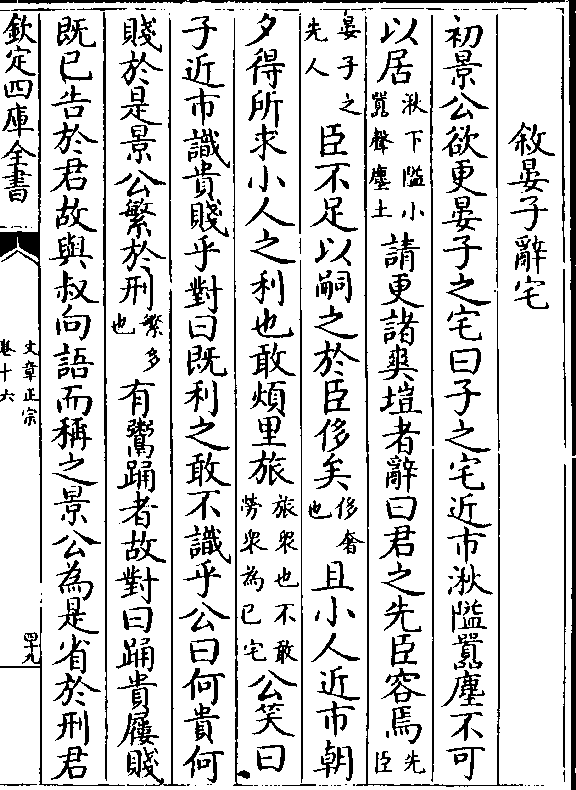 敘晏子辭宅
初景公欲更晏子之宅曰子之宅近市湫隘囂塵不可
以居湫下隘小囂聲塵土請更諸爽塏者辭曰君之先臣容焉先臣
晏子之先人臣不足以嗣之於臣侈矣侈奢也且小人近市朝
夕得所求小人之利也敢煩里旅旅衆也不敢勞衆為已宅公笑曰
子近市識貴賤乎對曰既利之敢不識乎公曰何貴何
賤於是景公繁於刑繁多也有鬻踊者故對曰踊貴屨賤
既已告於君故與叔向語而稱之景公為是省於刑君
欽定四庫全書
文章正宗
卷十六
四十九